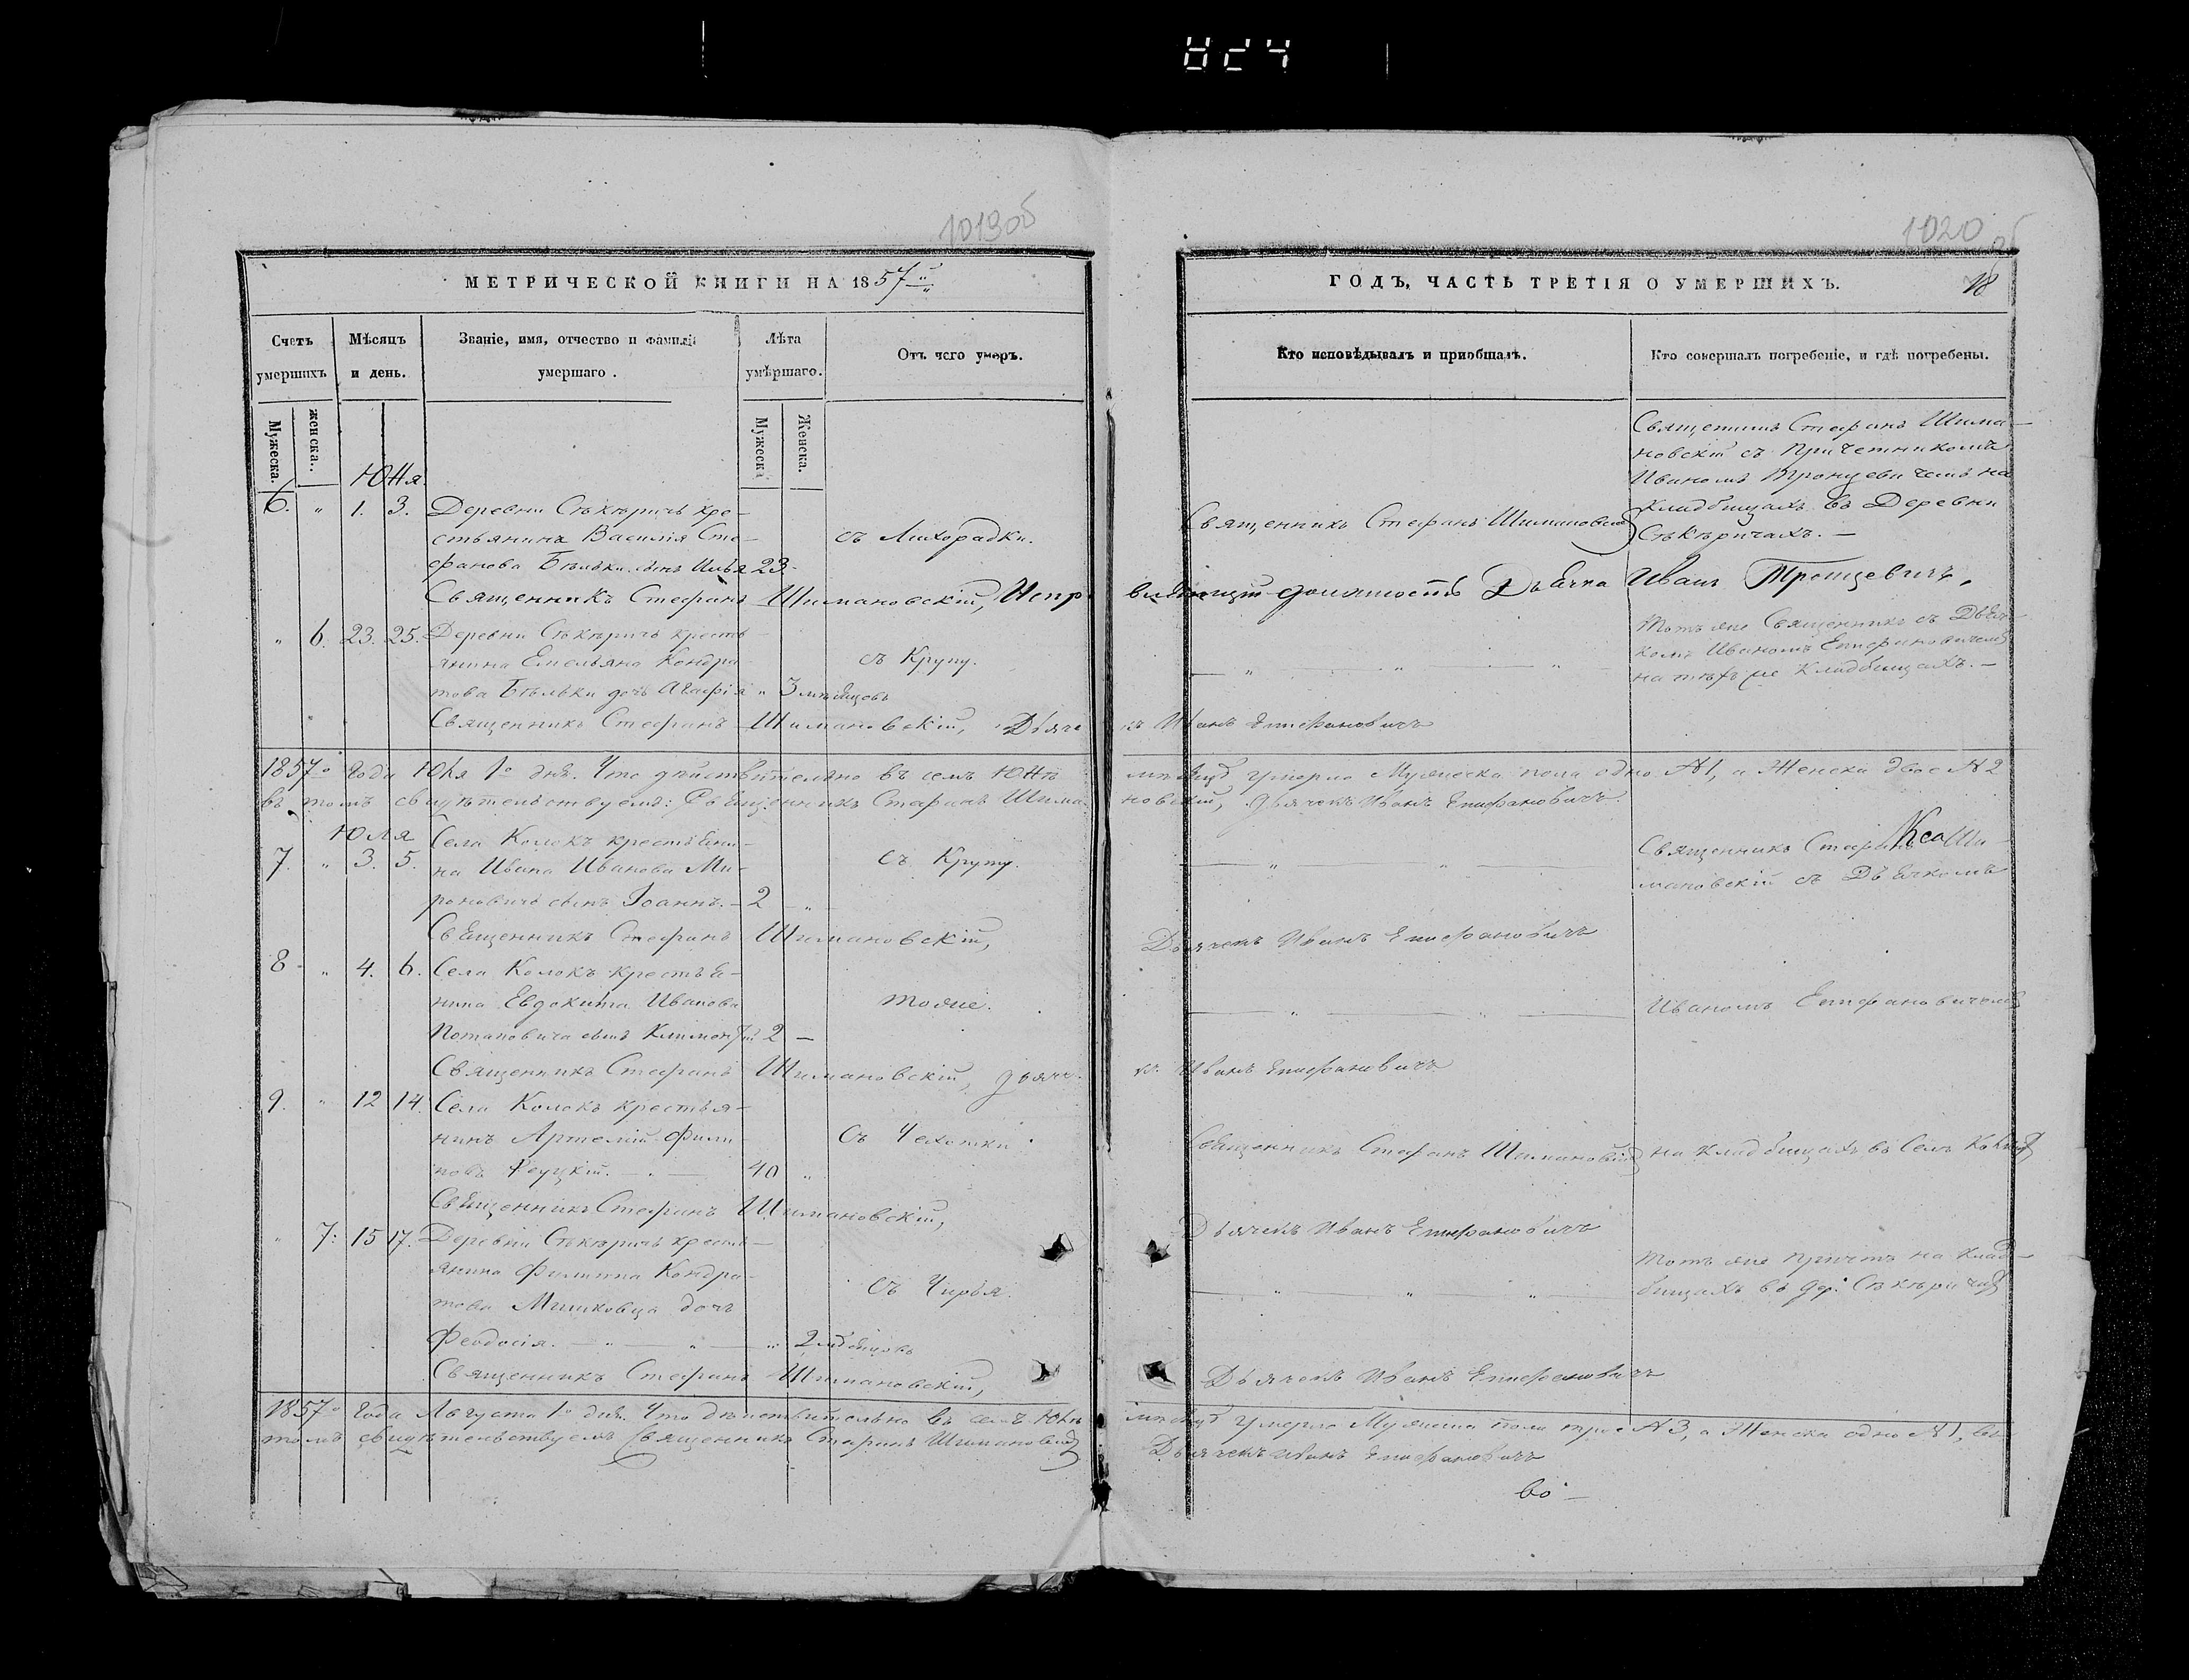 824
1019об
1020об
МЕТРИЧЕСКОЙ КНИГИ НА 1857
ГОДЪ, ЧАСТЬ ТРЕТІЯ О УМЕРШИХЪ.
18
Счетъ умершихъ
Мѣсяцъ и день.
Званіе, имя, отчество и фамилія умершаго.
Лѣта умѣршаго.
Отъ чего умеръ.
Кто исповѣдывалъ и приобщалъ.
Кто совершалъ погребеніе, и гдѣ погребены.
Мужеска.
женска.
Мужеска
Женска.
Юня.
6. " 1. 3. Деревни Сѣкѣричъ кре-
стьянина Василія Сте-
фанова Бѣльки сынъ Илья 23.
съ Лихорадки.
Священникъ Стефанъ Шимановскій
Священникъ Стефанъ Шима-
новскій съ Причетникомъ
Иваномъ Троцевичемъ на
кладбищахъ въ Деревни
Сѣкѣричахъ. —
Священникъ Стефанъ Шимановскій, Испр
авляющій должность Дьячка Иванъ Троцевичъ.
" 6. 23. 25. Деревни Сѣкѣричъ кресть-
янина Емельяна Кондра-
това Бѣльки дочь Агафія " 3 мѣсяцовъ
съ Крупу.
Тотъ же Священникъ съ Дьяч-
комъ Иваномъ Епифановичемъ
на тѣхъ же Кладбищахъ. —
Священникъ Стефанъ Шимановскій, Дьяче
къ Иванъ Епифановичъ
1857го Года Юля 1го дня. Что дѣйствительно въ семъ Юнѣ
мѣсяцѣ умерло Мужеска пола одно №1, а Женска двое №2
въ томъ свидѣтельствуемъ: Священникъ Стефанъ Шима-
новскій, Дьячекъ Иванъ Епифановичъ.
Юля
7. " 3. 5. Села Колокъ крестьяни-
на Ивана Иванова Ми-
роновича сынъ Іоаннъ. — 2 "
съ Крупу.
Священникъ Стефанъ Ши-
мановскій съ Дьячкомъ
Священникъ Стефанъ Шимановскій,
Дьячекъ Иванъ Епифановичъ
8 " 4. 6. Села Колокъ крестья-
нина Евдокима Иванова
Потаповича сынъ Климентій 2 —
тоже.
Иваномъ Епифановичемъ
Священникъ Стефанъ Шимановскій, дьяче
къ Иванъ Епифановичъ
9. " 12 14. Села Колокъ крестья-
нинъ Артемій Фили-
повъ 40 "
Съ Чехотки
Священникъ Стефанъ Шимановскій
на кладбищахъ въ Селѣ
Священникъ Стефанъ Шимановскій,
Дьячекъ Иванъ Епифановичъ
" 7: 15 17. Деревни Сѣкѣричъ кресть-
янина Филиппа Кондра-
това Мишковца дочь
Феодосія. — " — " — " 2 мѣсяцовъ
Съ Чирья.
Тотъ же Причтъ на Клад-
бищахъ въ дер: Сѣкѣричахъ
Священникъ Стефанъ Шимановскій,
Дьячекъ Иванъ Епифановичъ
1857го Года Августа 1го дня. Что дѣйствительно въ семъ Юлѣ
мѣсяцѣ умерло Мужеска пола трое №3, а Женска одно №1, въ
томъ свидѣтельствуемъ Священникъ Стефанъ Шимановскій
Дьячекъ Иванъ Епифановичъ
во